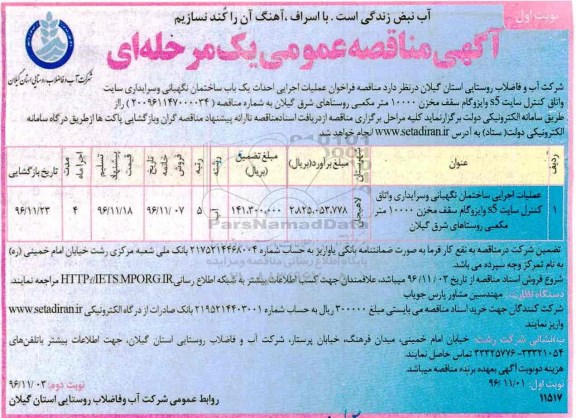 نوبت اول
آب نبض زندگی است . با اسراف ،آهنگ آن را کُند نسازیم
آگهی مناقصه عمومی یک مرحله‌ای
شرکت آب و فاضلاب روستایی استان گیلان
شرکت آب و فاضلاب روستایی استان گیلان درنظر دارد مناقصه فراخوان عملیات اجرایی احداث یک باب ساختمان نگهبانی وسرایداری سایت
واتاق کنترل سایت s5 وایزوگام سقف مخزن ۱۰۰۰۰ متر مکعبی روستاهای شرق گیلان به شماره مناقصه ( ۲۰۰۹۶۱۱۴۷۰۰۰۰۳۴ ) رااز
طریق سامانه الکترونیکی دولت برگزارنماید کلیه مراحل برگزاری مناقصه ازدریافت اسنادمناقصه تاارائه پیشنهاد مناقصه گران وبازگشایی پاکت ها ازطریق درگاه سامانه
الکترونیکی دولت( ستاد) به آدرس www.setadiran.ir انجام خواهد شد.
ردیف عنوان شهرستان مبلغ برآورد(ریال) مبلغ تضمین (ریال) رشته رتبه تاریخ خاتمه فروش تسلیم پیشنهاد قیمت مدت اجرا ماه تاریخ بازگشایی
۱ عملیات اجرایی ساختمان نگهبانی وسرایداری واتاق کنترل سایت s5 وایزوگام سقف مخزن ۱۰۰۰۰ متر مکعبی روستاهای شرق گیلان لاهیجان ۲،۸۲۵،۰۵۳،۷۷۸ ۱۴۱،۳۰۰،۰۰۰ آب ۵ ۹۶/۱۱/۰۷ ۹۶/۱۱/۱۸ ۴ ۹۶/۱۱/۲۳
تضمین شرکت در مناقصه به نفع کار فرما به صورت ضمانتنامه بانکی یاواریز به حساب شماره ۲۱۷۵۲۱۴۴۶۸۰۰۴ بانک ملی شعبه مرکزی رشت خیابان امام خمینی (ره)
به نام تمرکز وجه سپرده می باشد.
شروع فروش اسناد مناقصه از تاریخ ۹۶/۱۱/۰۳ میباشد، علاقمندان جهت کسب اطلاعات بیشتر به شبکه اطلاع رسانی HTTP://IETS.MPORG.IR مراجعه نمایند.
دستگاه نظارت : مهندسین مشاور پارس جویاب
شرکت کنندگان جهت خرید اسناد مناقصه می بایستی مبلغ ۳۰۰۰۰۰ ریال به حساب شماره ۲۱۹۵۲۱۴۴۰۳۰۰۱ بانک صادرات از درگاه الکترونیکی www.setadiran.ir
واریز نمایند.
نشانی شرکت: رشت خیابان امام خمینی، میدان فرهنگ، خیابان پرستار، شرکت آب و فاضلاب روستایی استان گیلان، جهت اطلاعات بیشتر باتلفن‌های
۳۳۳۲۱۰۵۴- ۳۳۳۲۵۷۷۶ تماس حاصل نمایند.
هزینه دونوبت آگهی بعهده برنده مناقصه میباشد
نوبت اول: ۹۶/۱۱/۰۱ نوبت دوم: ۹۶/۱۱/۰۳
۱۱۵۱۷ روابط عمومی شرکت آب وفاضلاب روستایی استان گیلان